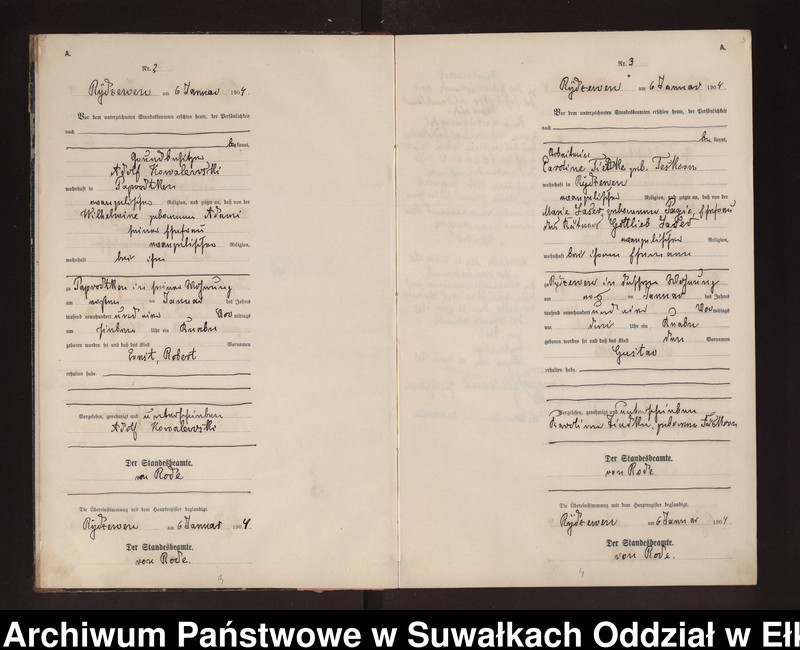 A.
Nr. 2
Rÿdzewen am 6 Januar 1904.
Vor dem unterzeichneten Standesbeamten erschien heute, der Persönlichkeit
nach
be kannt,
Grundbesitzer
Adolf Kowalewski
wohnhaft in Papprodtken
evangelischer Religion, und zeigte an, daß von der
Wilhelmine geborenen Adami
seiner Ehefrau
evangelischer Religion,
wohnhaft bei ihm
zu Papprodtken in seiner Wohnung
am ersten Januar des Jahres
tausend neunhundert und vier Vor mittags
um sieben Uhr ein Knabe
geboren worden sei und daß das Kind Vornamen
Ernst, Robert
erhalten habe.
Vorgelesen, genehmigt und unterschrieben
Adolf Kowalewski
Der Standesbeamte.
von Rode
Die Übereinstimmung mit dem Hauptregister beglaubigt.
Rÿdzewen am 6 Januar 1904.
Der Standesbeamte.
von Rode.
A.
Nr. 3
Rÿdzewen am 6 Januar 1904
Vor dem unterzeichneten Standesbeamten erschien heute, der Persönlichkeit
nach
be kannt,
Caroline geb.
wohnhaft in Rÿdzewen
evangelischer Religion, und zeigte an, daß von der
Marie geborenen Ehefrau
des Gottlieb
evangelischer Religion,
wohnhaft bei ihrem Ehemann
zu Rÿdzewen in dessen Wohnung
am Januar des Jahres
tausend neunhundert und vier Vor mittags
um drei Uhr ein Knabe
geboren worden sei und daß das Kind den Vornamen
Gustav
erhalten habe.
Vorgelesen, genehmigt und unterschrieben
geborene
Der Standesbeamte.
von Rode
Die Übereinstimmung mit dem Hauptregister beglaubigt.
Rÿdzewen am 6 Januar 1904.
Der Standesbeamte.
von Rode.
Archiwum Państwowe w Suwałkach Oddział w Ełk